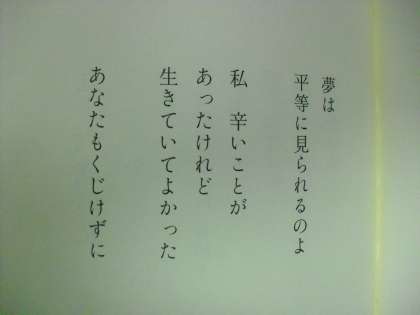 夢は
平等に見られるのよ
私　辛いことが
あったけれど
生きていてよかった
あなたもくじけずに